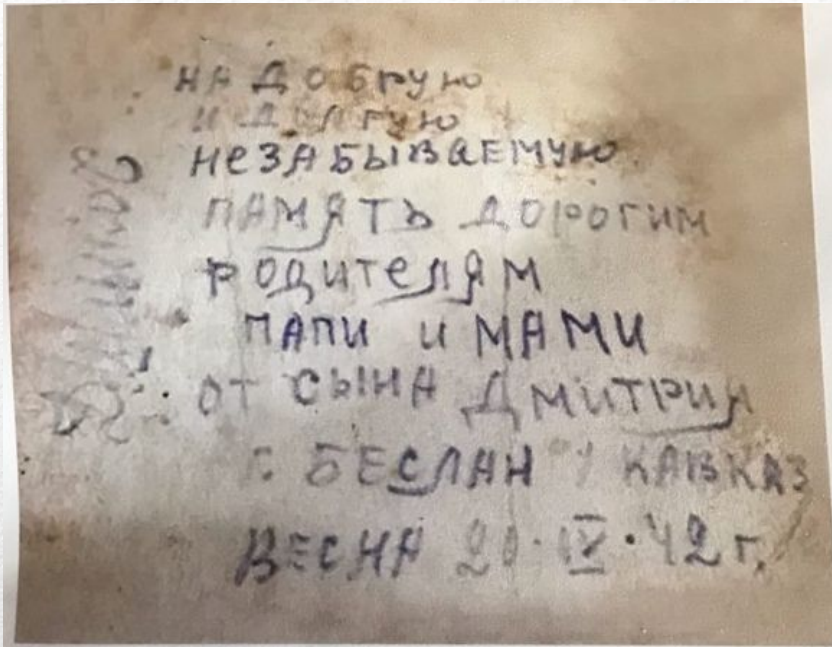 НА ДОБРУЮ
И ДОЛГУЮ
НЕЗАБЫВАЕМУЮ
ПАМЯТЬ ДОРОГИМ
РОДИТЕЛЯМ
ПАПИ И МАМИ
ОТ СЫНА ДМИТРИЯ
Г. БЕСЛАН КАВКАЗ
ВЕСНА 20·IV·42 г.